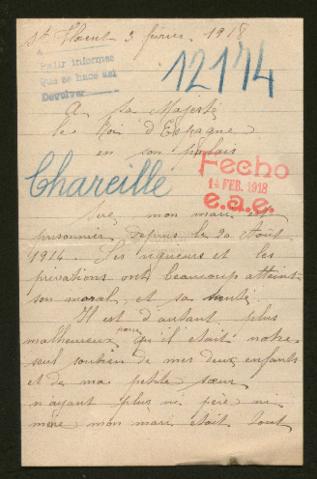 St Florent 3 février 1918
Pedir informes
Que se hace asi
Devolver
12144
A sa Majesté
le Roi d'Espagne
en son palais
Fecho
14 FEB. 1918
e.a.e.
Chareille
Sire, mon mari
prisonnier depuis le 20 Août
1914. Les rigueurs et les
privations ont beaucoup atteint
son moral et sa santé.
Il est d'autant plus
malheureux parce qu'il était notre
seul soutien de mes deux enfants
et de ma petite sœur
n'ayant plus ni père ni
mère mon mari était tout